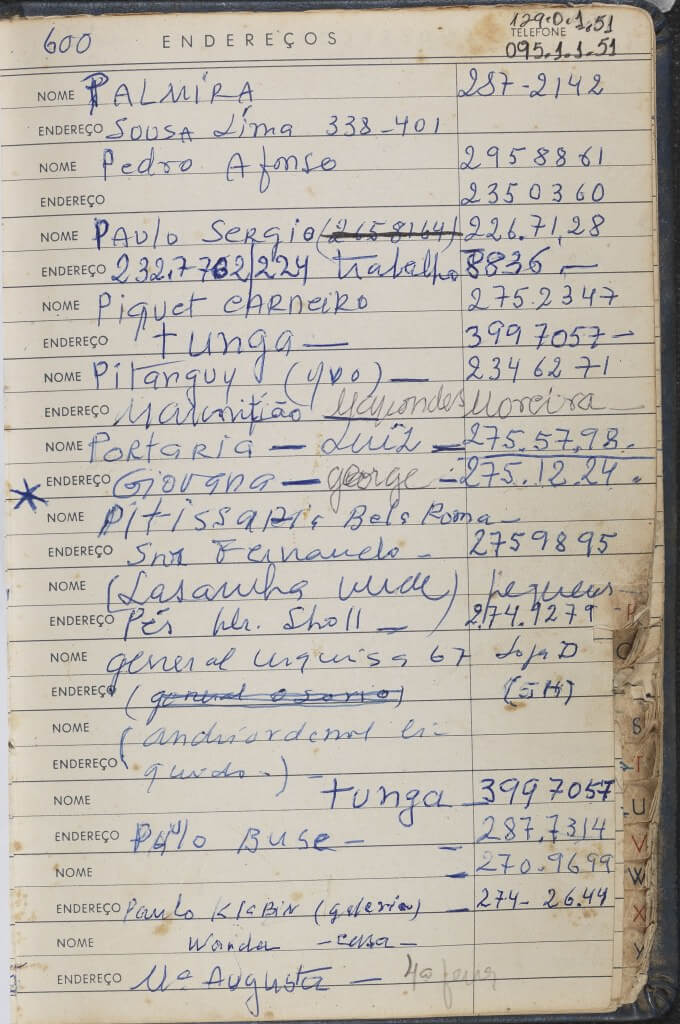 600 ENDEREÇOS 129.0.1.51
TELEFONE
095.1.1.51
NOME PALMÍRA 287-2142
ENDEREÇO SOUSA Lima 338-401
NOME Pedro Afonso 2958861
ENDEREÇO 2350360
NOME PAULO SERGIO (2658164) 226.71,28
ENDEREÇO 232.7702/224 trabalho 8836 —
NOME Piquet CARNEIRO 275.2347
ENDEREÇO tunga — 3997057 —
NOME Pitanguy (yvo) — 2346271
ENDEREÇO Moreira
NOME PORTARIA — LUIZ — 275.57.98.
ENDEREÇO GIOVANA — george — 275.12.24.
NOME Pitissaria Bela Roma —
ENDEREÇO Snr Fernando — 2759895
NOME (Lasanha verde) pequena
ENDEREÇO Pés Dr. Sholl — 274.9279
NOME general urquisa 67 Loja D
ENDEREÇO (general osorio)
NOME (
ENDEREÇO quido.) —
NOME tunga 3997057
ENDEREÇO Paulo BUSE — 287.7314
NOME — 270.9699
ENDEREÇO Paulo KlaBin (galeria) — 274-26.44
NOME Wanda — casa —
ENDEREÇO Mª AUGUSTA — 4ª feira
S
T
U
V
W
X
Y